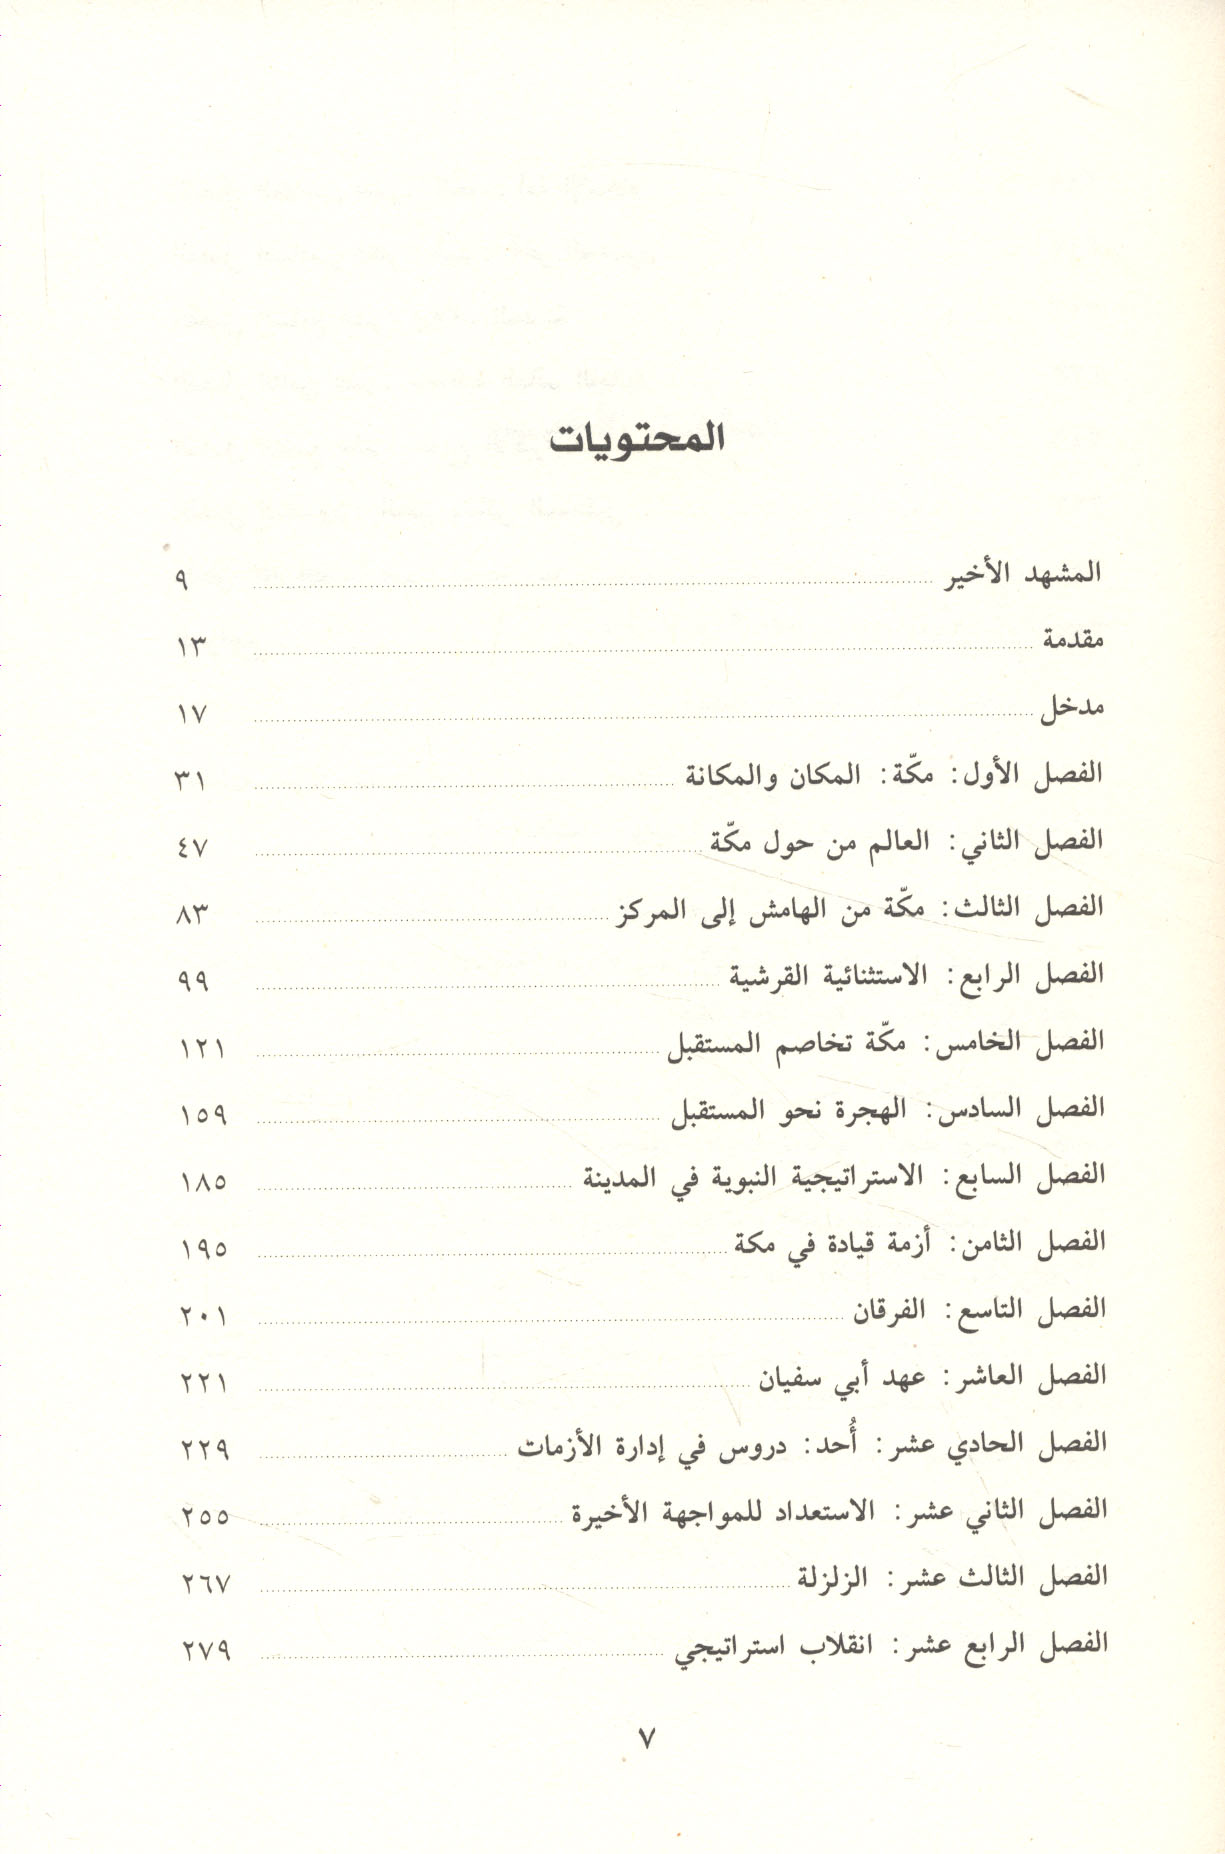 المحتويات
المشهد الأخير ٩
مقدمة ١٣
مدخل ١٧
الفصل الأول: مكّة: المكان والمكانة ٣١
الفصل الثاني: العالم من حول مكّة ٤٧
الفصل الثالث: مكّة من الهامش إلى المركز ٨٣
الفصل الرابع: الاستثنائية القرشية ٩٩
الفصل الخامس: مكّة تخاصم المستقبل ١٢١
الفصل السادس: الهجرة نحو المستقبل ١٥٩
الفصل السابع: الاستراتيجية النبوية في المدينة ١٨٥
الفصل الثامن: أزمة قيادة في مكة ١٩٥
الفصل التاسع: الفرقان ٢٠١
الفصل العاشر: عهد أبي سفيان ٢٢١
الفصل الحادي عشر: أُحد: دروس في إدارة الأزمات ٢٢٩
الفصل الثاني عشر: الاستعداد للمواجهة الأخيرة ٢٥٥
الفصل الثالث عشر: الزلزلة ٢٦٧
الفصل الرابع عشر: انقلاب استراتيجي ٢٧٩
٧